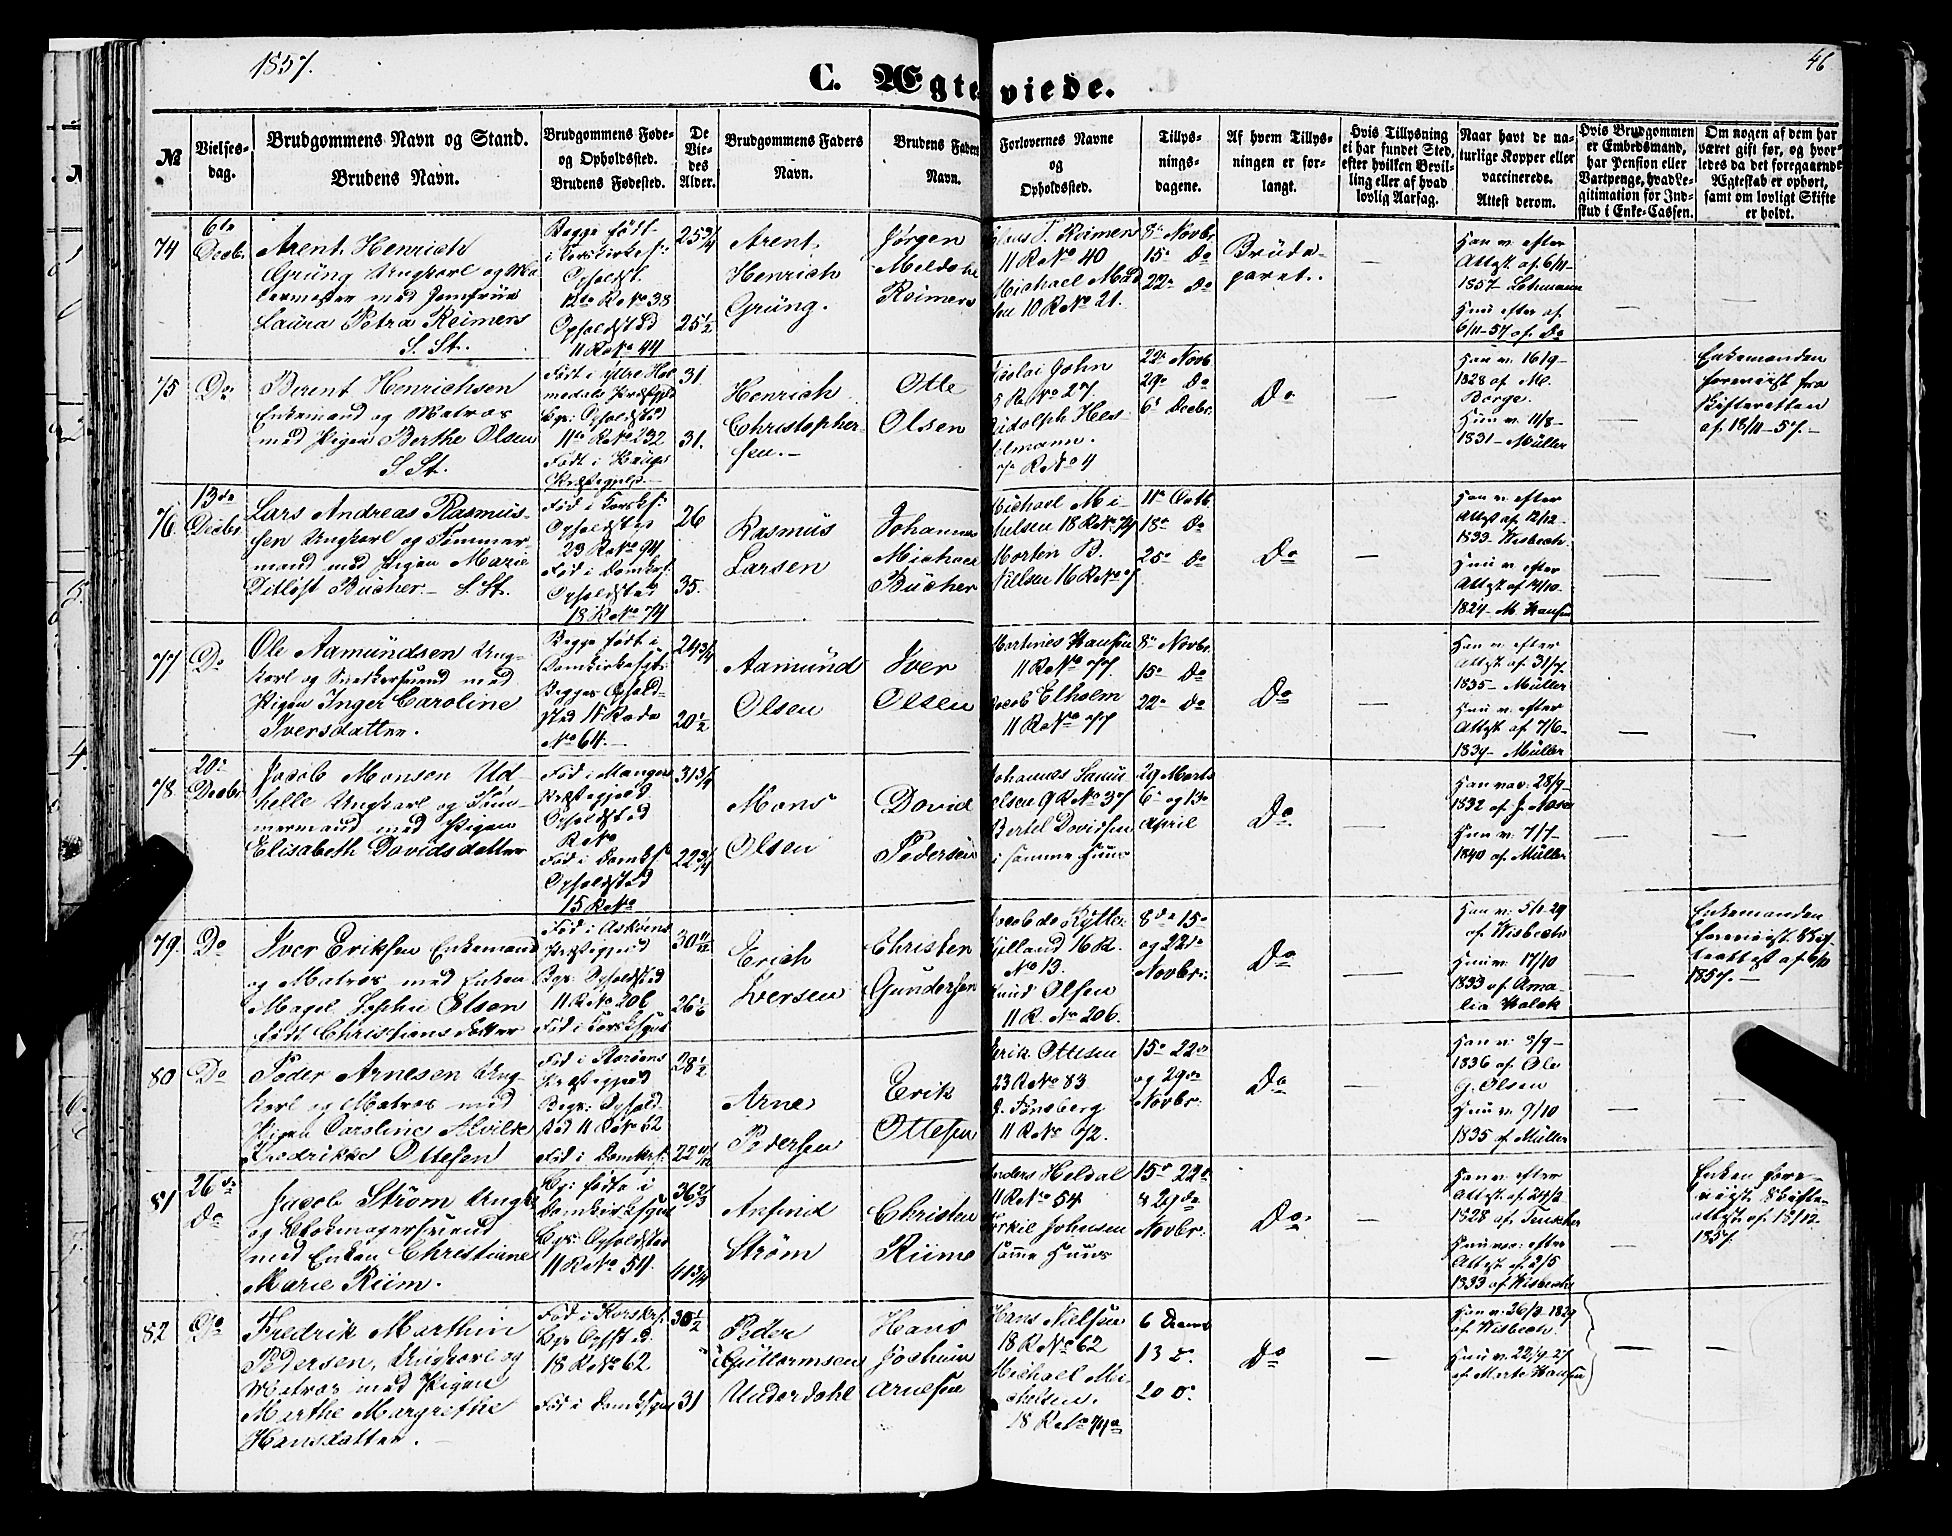 1857.
46
C. Ægteviede.
№
Vielses-
dag.
Brudgommens Navn og Stand.
Brudens Navn.
Brudgommens Føde-
og Opholdssted.
Brudens Fødested.
De
Vie-
des
Alder.
Brudgommens Faders
Navn.
Brudens Faders
Navn.
Forlovernes Navne
og
Opholdssted.
Tillys-
nings-
dagene.
Af hvem Tillys-
ningen er for-
langt.
Hvis Tillysning
ei har fundet Sted,
efter hvilken Bevil-
ling eller af hvad
lovlig Aarsag.
Naar havt de na-
turlige Kopper eller
vaccinerede.
Attest derom.
Hvis Brudgommen
er Embedsmand,
har Pension eller
Vartpenge, hvad Le-
gitimation for Ind-
skud i Enke-Cassen.
Om nogen af dem har
været gift før, og hvor-
ledes da det foregaaende
Ægteskab er ophørt,
samt om lovligt Skifte
er holdt.
74
6te
Decbr.
Arent Henrich
Grüng Ungkarl og Ma-
lermester med Jomfrue
Laura Petra Reimers
S. St.
Begge født
i Korskirkes:
Opholdst.
12te R No 38
Opholdsted
11 R No 44
25 3/4
25 1/2
Arent
Henrich
Grüng.
Jørgen
Meldahl
Reimers
Reimers
11 R No 40
Michael
10 R No 21.
8de Novbr.
15de Do
22de Do
Brude-
parret.
Han v. efter
Attest af 6/11
1857 Lehmann
Hun efter af
6/11-57 af Do
75
Do
Berent Henrichsen
Enkemand og Matros
med Pigen Berthe Olsen
S. St.
Født i Yttre Hol-
medals Præstegjeld
Bgr: Opholdsted
11te R No 232
Født i Haugs
Præstegjeld.
31.
31.
Henrich
Christopher-
sen.
Otte
Olsen
Nicolai John
5 R No 27
Rudolph
7de R No 4
22de Novb.
29de Do
6te Decbr.
Do
Han v. 16/9-
1828 af M.
Børge.
Hun v. 11/8-
1831 - Müller
Enkemanden
foreviist fra
Skifteretten
af 18/11-57.
76.
13de
Decbr
Lars Andreas Rasmus-
sen Ungkarl og Tømmer-
mand med Pigen Marie
Ditløst Bücher. S. St.
Fød i Korsks:
Opholdsted
23 R No 94
Fød i Domks:
Opholdsted
18 R No 74
26
35.
Rasmus
Larsen
Johannes
Michael
Bücher
Michael Mi-
chelsen 18 R No 74
Morten B.
Nielsen 16 R No 7
11te Octb.
18de Do
25de Do
Do
Han v. efter
Attest af 12/12-
1833 Wisbech.
Hun v. efter
Attest af 14/10-
1824 M Hansen
77
Do
Ole Aamundsen Ung-
karl og Snedkersvend med
Pigen Inger Caroline
Iversdatter.
Begge født i
Domkirkesgt:
Begges Ophold-
sted 11 Rode
No 64.
24 3/4
20 1/2
Aamund
Olsen
Iver
Olsen
Martines Hansen
11 R No 77
Jacob Elholm
11 R No 77
8de Novbr.
15de Do
22de Do
Do
Han v. efter
Attest af 31/7
1835 - Müller
Hun v. efter
Attest af 7/6-
1837 - Müller
78
20de
Decbr
Jacob Monsen Ud-
helle Ungkarl og Tøm-
mermand med Pigen
Elisabeth Davidsdatter
Fød i Manger
Præstegjeld
Opholdsted
R No
Fød i Domks:
Opholdsted
15 R No
31 3/4
22 3/4
Mons
Olsen
David
Pedersen
Johannes Samu-
elsen 9 R No 37
Bertel Davidsen
i samme Huus
29 Marts
6te og 13de
April
Do
Han var 28/9-
1832 af J. Aase
Hun v. 7/7-
1840 af Müller
79.
Do
Iver Eriksen Enkemand
og Matros med Enken
Magel Sophie Olsen
født Christiansdatter
Fød i Askøens
Præstegjeld
Bgr: Opholdsted
11 R No 206
Fød i Korsksgt
30 11/12
26 1/6
Erich
Iversen
Christen
Gundersen
Jacob de Rytter
16 R.
No 13.
Knud Olsen
11 R. No 206.
8de 15de
og 22de
Novbr:
Do
Han v: 5/12 29
af Wisbech
Hun v: 17/10
1833 af Ama-
lia Kalck
Enkemanden
foreviist Skif-
teattest af
1857.
80
Do
Peder Arnesen Ung-
karl og Matros med
Pigen Caroline Alvilde
Fredrikke Ottesen
Fød i Korsens
Præstegjeld
Begr: Ophold-
sted 11 R No 52
Fød i Domkrs:
28 1/2
22 11/12
Arne
Pedersen
Erik
Ottesen
Erik Ottesen
23 R No 83
Tønsberg
11 R No 52.
15de 22de
og 29de
Novbr:
Do
Han v: 3/9-
1836 af Ole
G. Olsen
Hun v: 9/10
1835 af Müller
81
26de
Do
Jacob Strøm Ungk.
og Blokmagersvend
med Enken Christiane
Marie Riim.
Bg: fødte i
Domkirkesgt
Bgs: Opholdsted
11 R No 54.
36 2/3
41 3/4
Anfind
Strøm
Christen
Riime
Anders Heldal
11 R No 54
Torkil Johnsen
samme Huus
15de 22de
& 29de
Novbr:
Do
Han v. efter
Attest af 24/2
1828 af
Hun var: efter
Attest af 2/5
1833 af Wisbech
Enken fore-
viist Skifte-
attest af 18/12
1857.
82
Do
Fredrik Marthin
Pedersen, Ungkarl og
Matros med Pigen
Marthe Margrethe
Hansdatter.
Fød i Korskr:
Bgs Opsted.
18 R No 62
Fød i Domksgt
30 1/2
31
Peder
Guttormsen
Underdahl
Hans
Jochum
Arnesen
Hans Nielsen
18 R No 62
Michael Mi-
chelsen.
18 R No 74a
6 Decemb
13 D.
20 D.
Do
Han v: 26/2 1829
af Wisbech.
Hun v. 22/9 27
af Merte Hansen